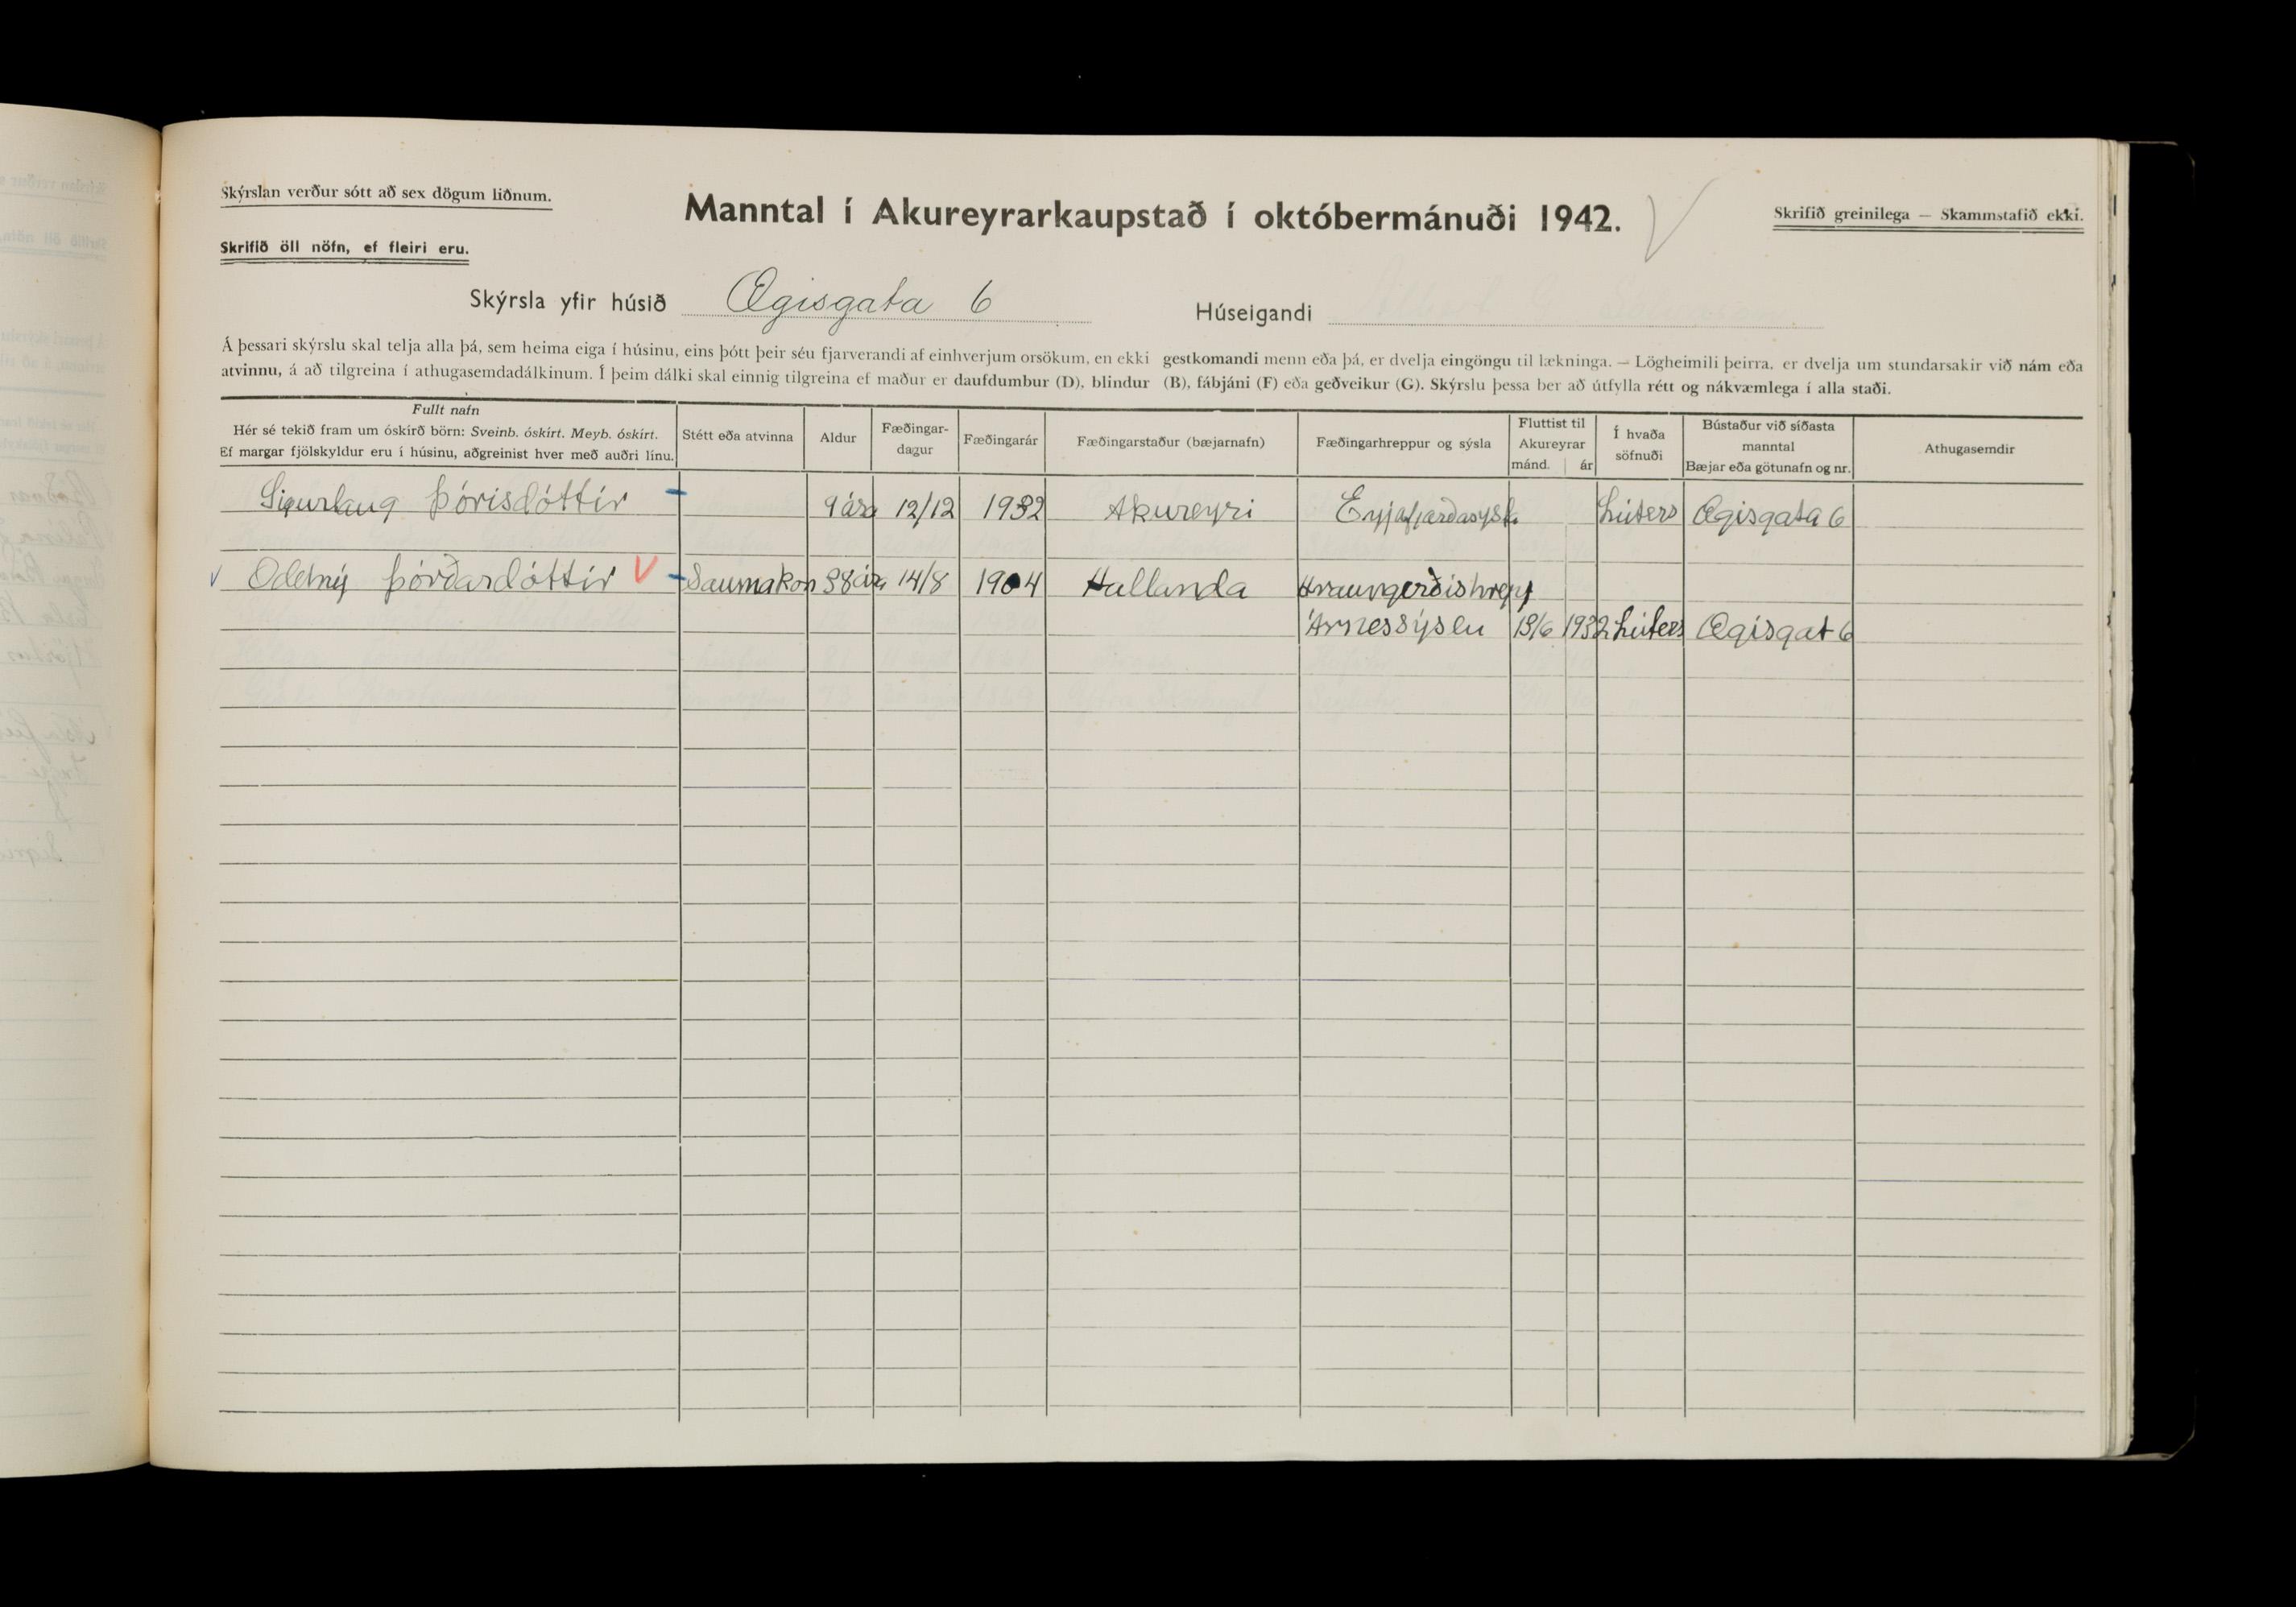 Skýrslan verður sótt að sex dögum liðnum.
Manntal í Akureyrarkaupstað í októbermánuði 1942.
Skrifið greinilega — Skammstafið ekki.
Skrifið öll nöfn, ef fleiri eru.
Skýrsla yfir húsið Ægisgata 6 Húseigandi
Á þessari skýrslu skal telja alla þá, sem heima eiga í húsinu, eins þótt þeir séu fjarverandi af einhverjum orsökum, en ekki gestkomandi menn eða þá, er dvelja eingöngu til lækninga. — Lögheimili þeirra, er dvelja um stundarsakir við nám eða
atvinnu, á að tilgreina í athugasemdadálkinum. Í þeim dálki skal einnig tilgreina ef maður er daufdumbur (D), blindur (B), fábjáni (F) eða geðveikur (G). Skýrslu þessa ber að útfylla rétt og nákvæmlega í alla staði.
Fullt nafn
Hér sé tekið fram um óskírð börn: Sveinb. óskírt. Meyb. óskírt.
Ef margar fjölskyldur eru í húsinu, aðgreinist hver með auðri línu.
Stétt eða atvinna
Aldur
Fæðingar-
dagur
Fæðingarár
Fæðingarstaður (bæjarnafn)
Fæðingarhreppur og sýsla
Fluttist til
Akureyrar
mánd. ár
Í hvaða
söfnuði
Bústaður við síðasta
manntal
Bæjar eða götunafn og nr.
Athugasemdir
Sigurlaug Þórisdóttir 9 ára 12/12 1932 Akureyri Eyjafjarðasýsl. Lúters Ægisgata 6
Oddný Þórðardóttir V Saumakon 38 ára 14/8 1904 Hallanda Hraungerðishrepp
Árnessýslu 13/6 1932 Lúters Ægisgat 6